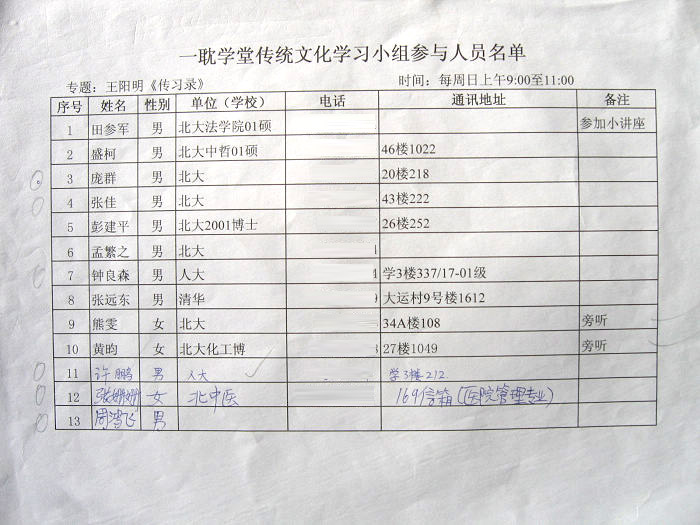 一耽学堂传统文化学习小组参与人员名单
专题：王阳明《传习录》 时间：每周日上午9:00至11:00
序号 姓名 性别 单位（学校） 电话 通讯地址 备注
1 田参军 男 北大法学院01硕 参加小讲座
2 盛柯 男 北大中哲01硕 46楼1022
3 庞群 男 北大 20楼218
4 张佳 男 北大 43楼222
5 彭建平 男 北大2001博士 26楼252
6 孟繁之 男 北大
7 钟良森 男 人大 学3楼337/17-01级
8 张远东 男 清华 大运村9号楼1612
9 熊雯 女 北大 34A楼108 旁听
10 黄昀 女 北大化工博 27楼1049 旁听
11 许鹏 男 人大 学3楼212
12 张姗姗 女 北中医 169信箱（医院管理专业）
13 周鸿飞 男